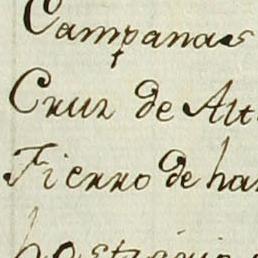 Campanas
Cruz de Alt
Fierro de ha